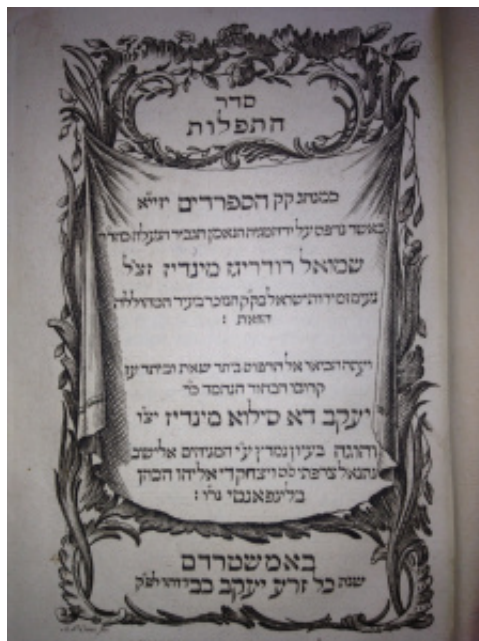 סדר
התפלות
כמנהג קק הספרדים יזי״א
כאשר נדפס על יד המגיה הנאמן הגביר הנעלה כהדר
שמואל רודריגז מינדיז זצ״ל
בק״ק הנזכר בעיר המהוללה
הזאת :
ועתה הביאו אל הדפוס ביתר שאת וביתר עז
קרובו הבחור הנחמד כ״ר
יעקב דא סילוא מינדיז יצ״ו
והוגה בעיון נמרץ ע״י המגיהים אלישיב
נתנאל צרפתי ויצחק די אליהו הכהן
בליפאנטי נר״ו :
באמשטרדם
שנת כל זרע יעקב כבדוהו לפ״ק